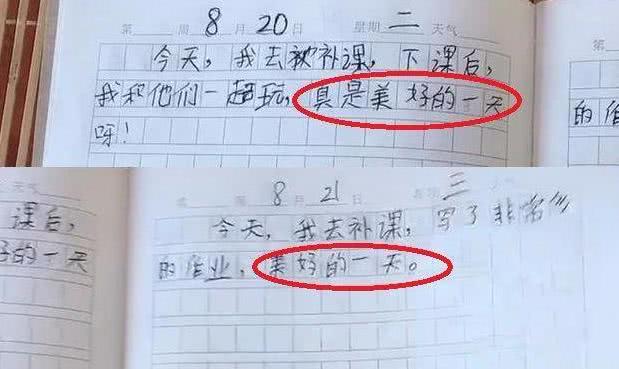 第 周 8月20日 星期二 天气
今天，我去被补课，下课后，
我和他们一起玩，真是美好的一天
呀！
第
的作
天气
课后，
好的一天
8月21日 星期三
今天，我去补课，写了非常多
的作业，美好的一天。